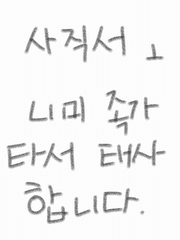 사직서 ㅗ
니미 족가
타서 태사
합니다.